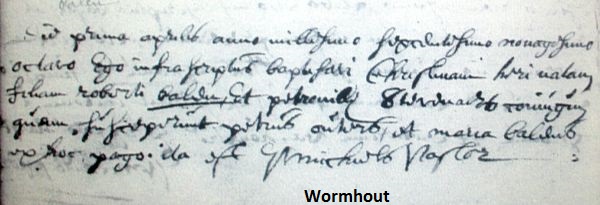 die prima aprilis anno millesimo sexcentesimo nonagesimo
octavo Ego infrascriptus baptisavi Christinam heri natam
filiam roberti baldin, et petronill Stevenaert coniugum
quam susceperunt petrus outters, et maria baldens
ex hoc pago. Ita est Michaels Pastor
Wormhout